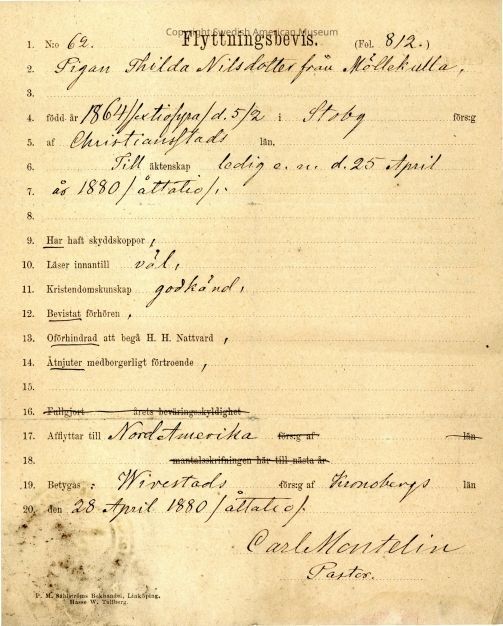 Copyright Swedish American Museum
Flyttningsbevis.
1. N:o 62. (Fol. 812.)
2. Pigan Thilda Nilsdotter från Möllekulla,
3.
4. född år 1864/sextiofyra/ d. 5/2 i Stoby förs:g
5. af Christianstads län.
6. Till äktenskap ledig e. n. d. 25 April
7. år 1880/åttatio/.
8.
9. Har haft skyddskoppor,
10. Läser innantill väl,
11. Kristendomskunskap godkänd,
12. Bevistat förhören,
13. Oförhindrad att begå H. H. Nattvard,
14. Åtnjuter medborgerligt förtroende,
15.
16. Fullgjort årets beväringsskyldighet
17. Afflyttar till Nord Amerika förs:g af län
18. mantalsskrifningen här till nästa år
19. Betygas: Wirestads förs:g af Kronobergs län
20. den 28 April 1880/åttatio/.
Carl Montelin
Pastor.
P. M. Sahlströms Bokhandel, Linköping.
Hasse W. Tullberg.